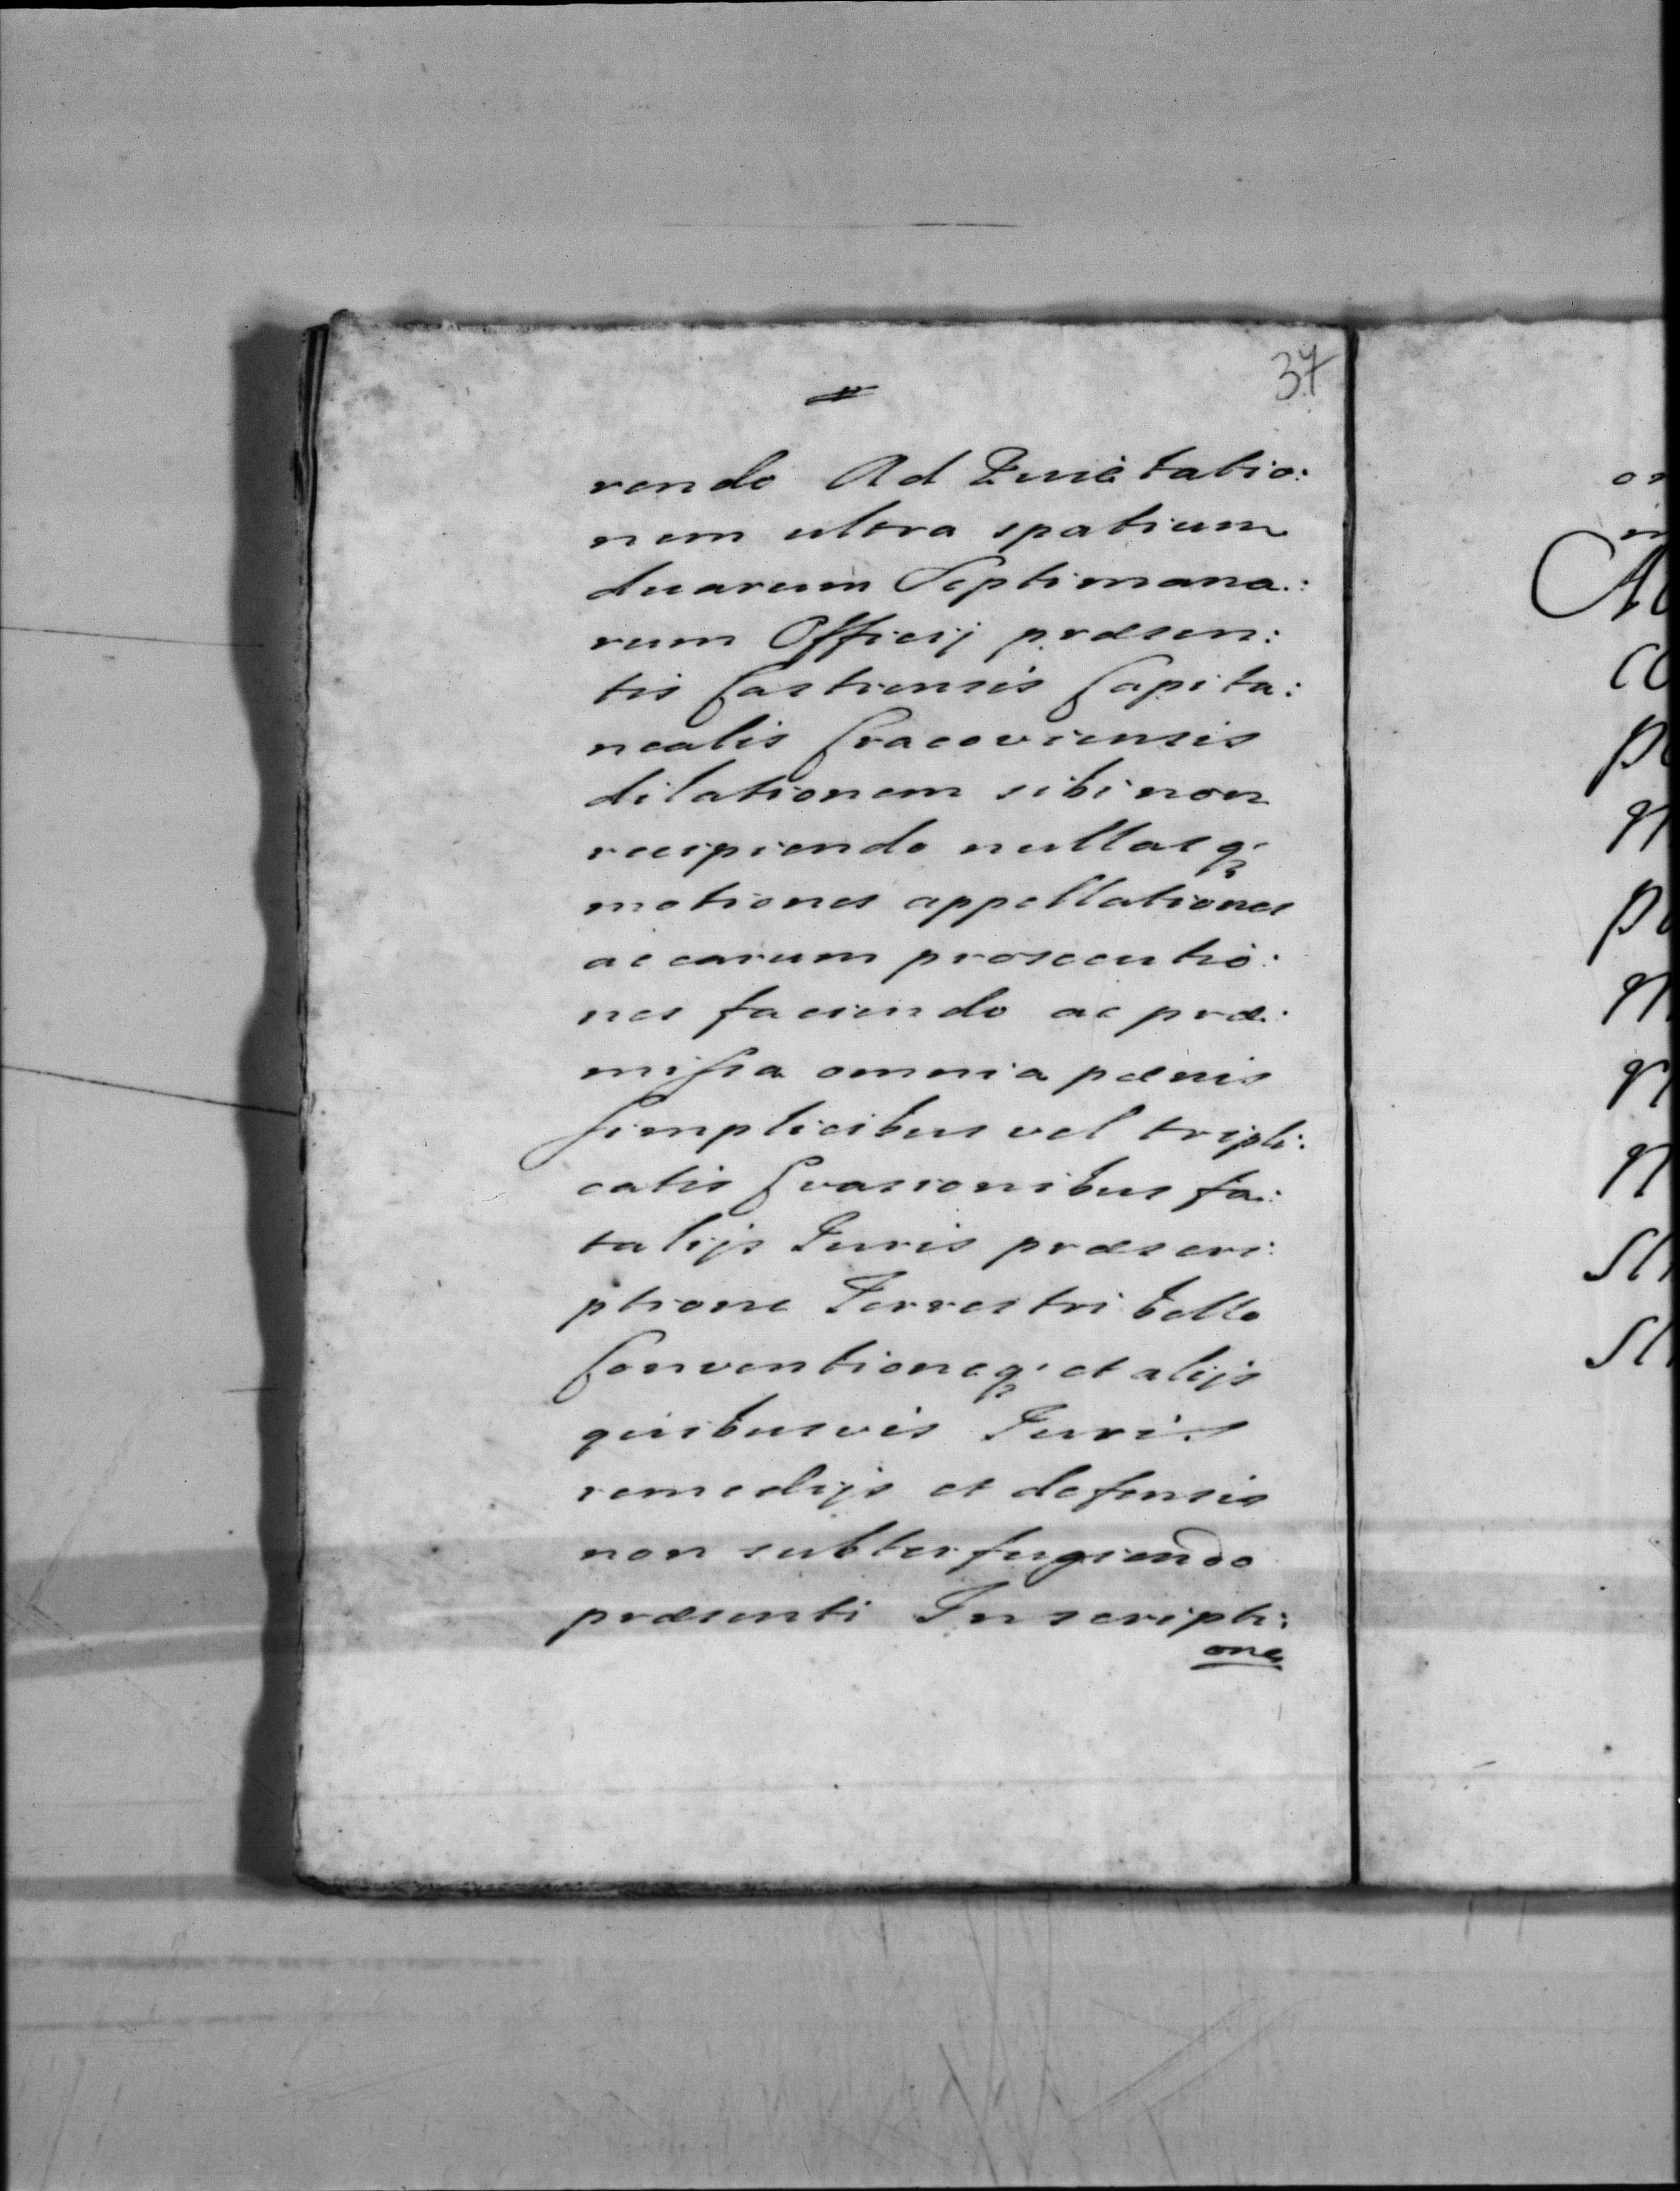 37
rendo Ad Quietatio:
nem ultra spatium
duarum Septimana:
rum Officij præsen:
tis Castrensis Capita:
nealis Cracoviensis
dilationem sibi non
recipiendo nullasq́3
motiones appellationes
ac earum prosecutio:
nes faciendo ac præ:
missa omnia pænis
simplicibus vel tripli:
catis Evasionibus fa:
talijs Juris præscri:
ptione Terrestri bello
Conventioneq́3 et alijs
quibusvis Juris
remedijs et defensis
non subterfugiendo
præsenti Inscripti:
one